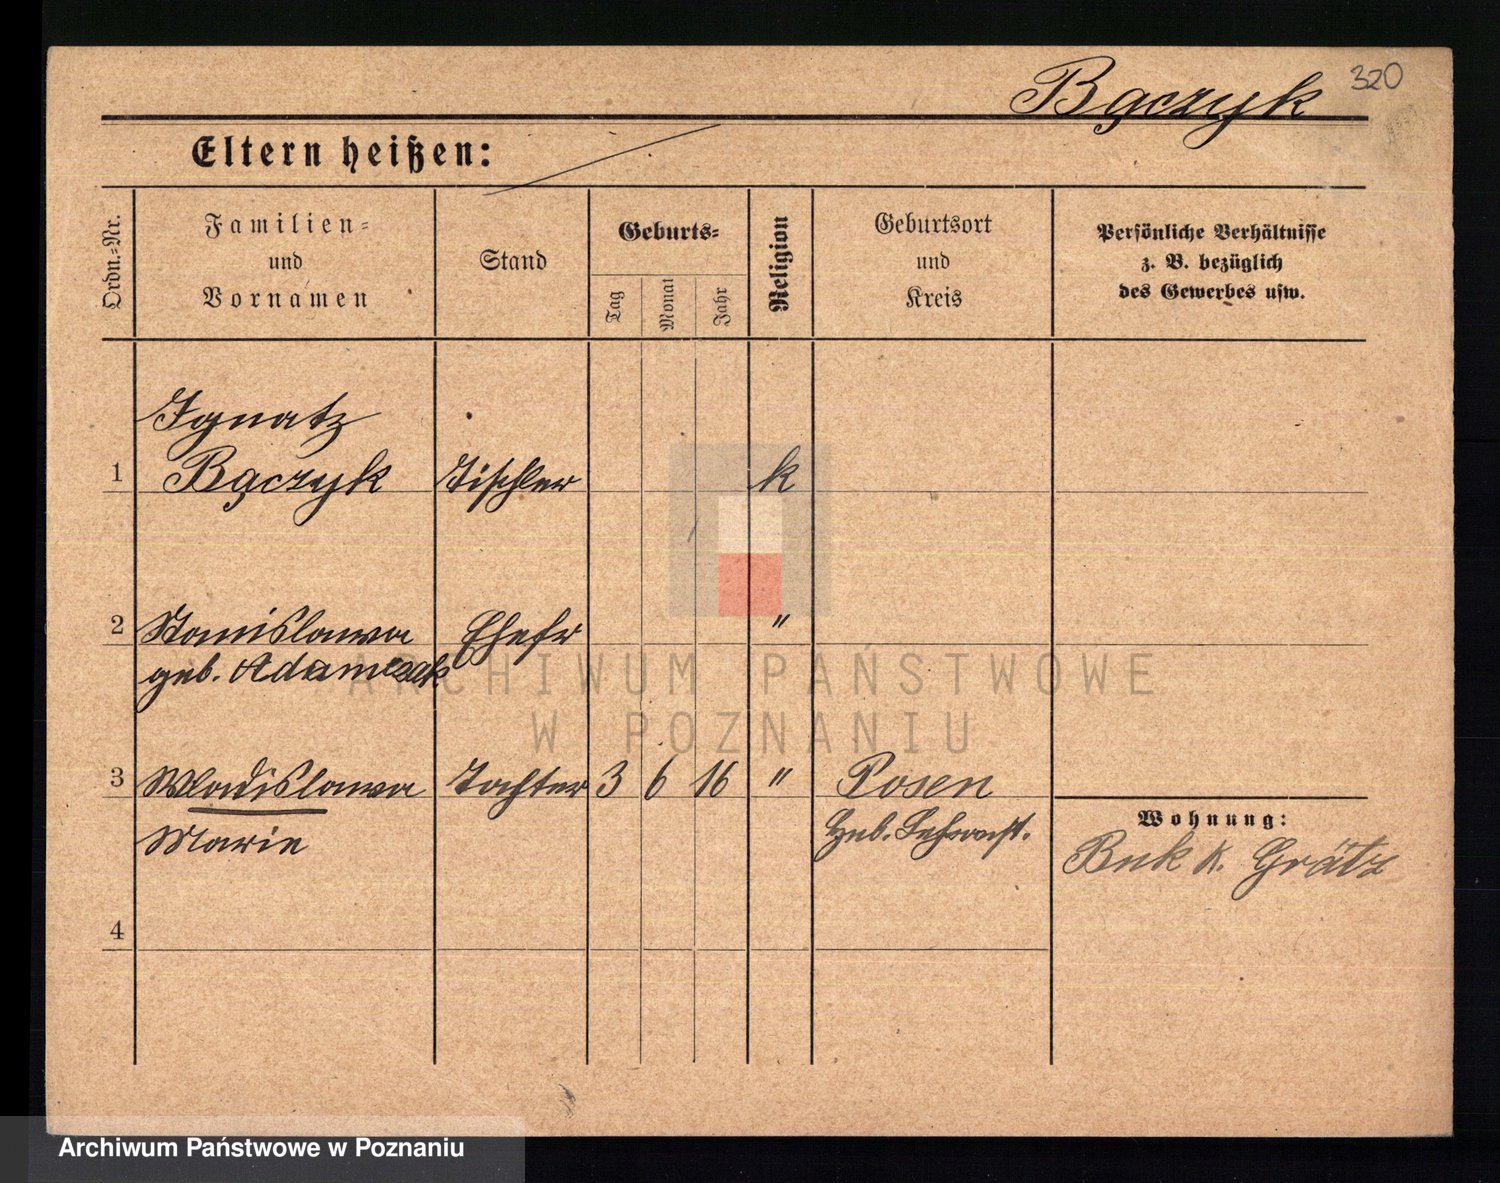 Bączyk 320
Eltern heißen:
Ordn.-Nr.
Familien-
und
Vornamen
Stand
Geburts-
Tag
Monat
Jahr
Religion
Geburtsort
und
Kreis
Persönliche Verhältnisse
z. B. bezüglich
des Gewerbes usw.
Ignatz
1 Bączyk Tischler k
2 Stanislawa Ehefr "
geb. Adamczak
3 Wladislawa Tochter 3 6 16 " Posen
Marie
Wohnung:
Buk K. Grätz
4
ARCHIWUM PAŃSTWOWE
W POZNANIU
Archiwum Państwowe w Poznaniu